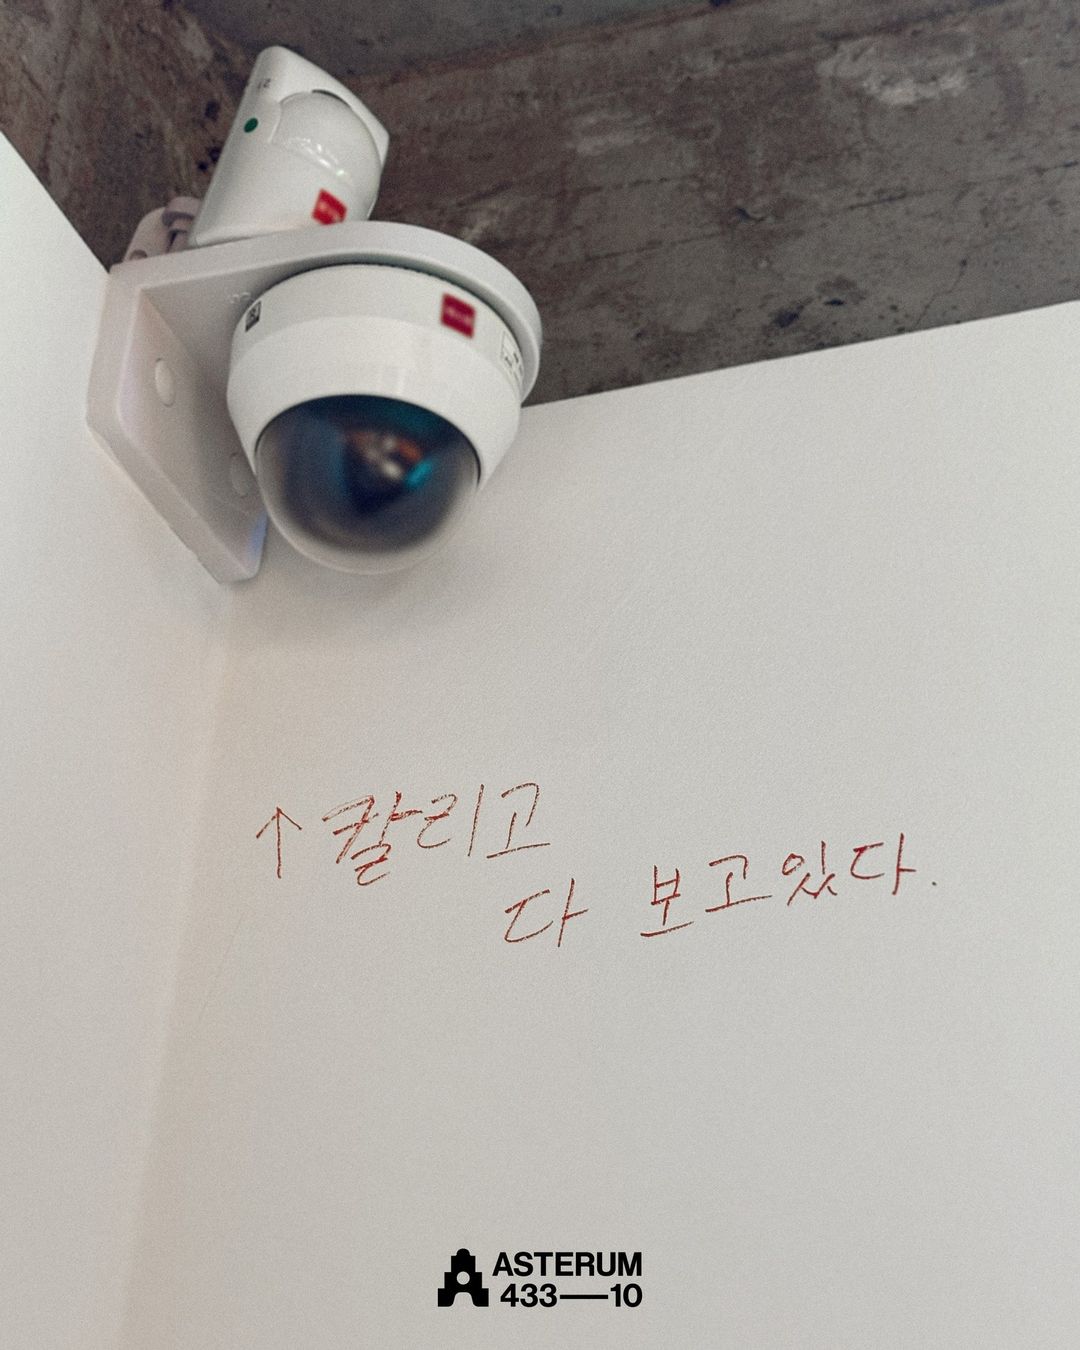 ↑칼리고
다 보고있다.
ASTERUM
433—10